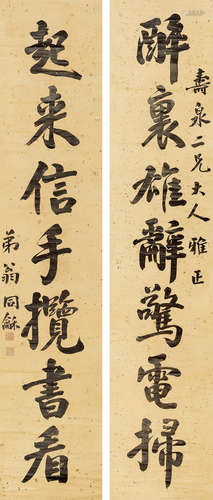 壽泉二兄大人雅正
醉裏雄辭驚電掃
起来信手攬書看
弟翁同龢